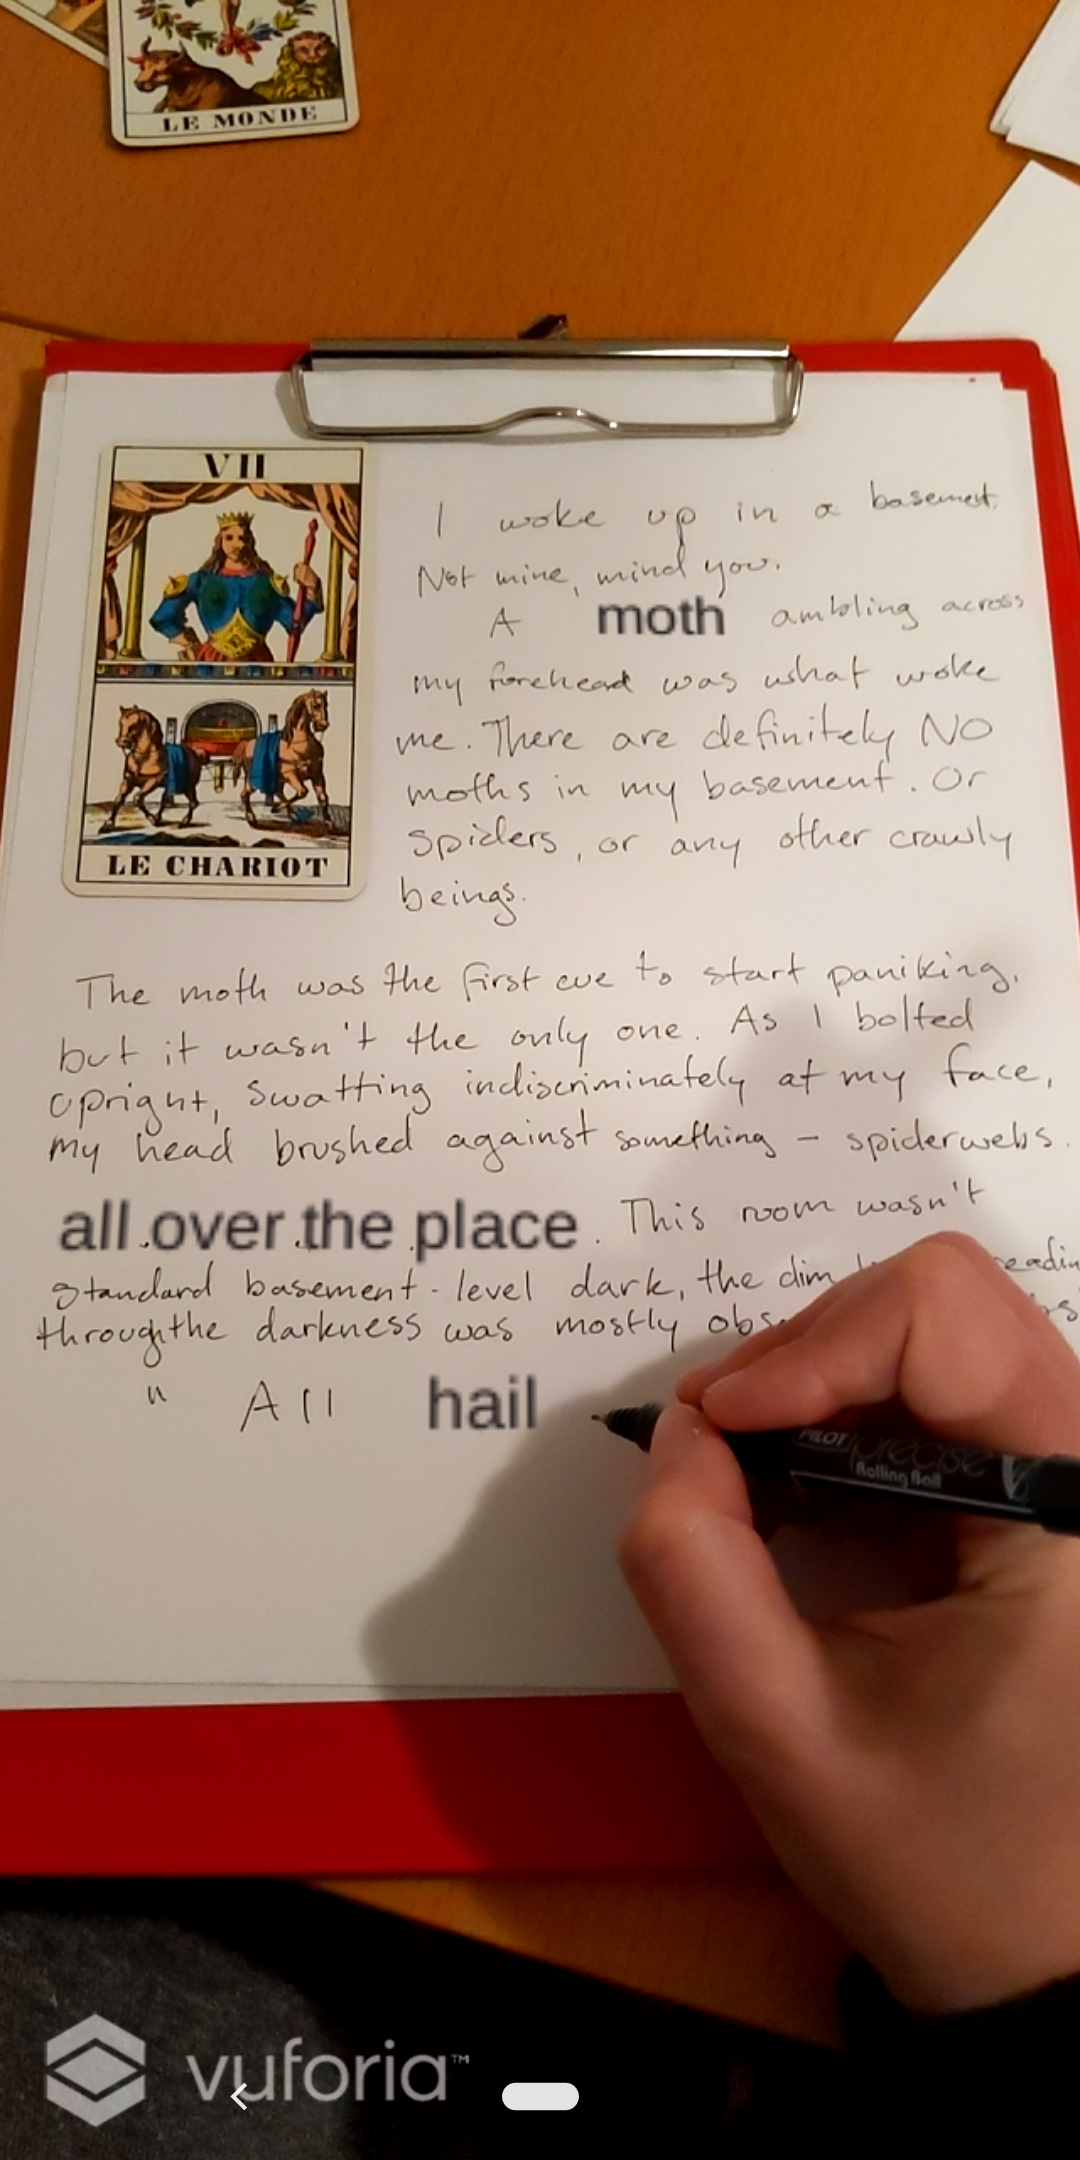 LE MONDE
VII
LE CHARIOT
I woke up in a basement.
Not mine, mind you.
A moth ambling across
my forehead was what woke
me. There are definitely NO
moths in my basement. Or
spiders, or any other crawly
beings.
The moth was the first cue to start paniking,
but it wasn't the only one. As I bolted
upright, swatting indiscriminately at my face,
my head brushed against something - spiderwebs.
all over the place. This room wasn't
standard basement-level dark, the dim
through the darkness was mostly
" All hail
PILOT precise
Rolling Ball
vuforia™